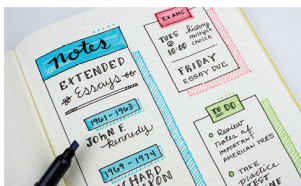 notes
EXTENDED
Essays
1961-1963
JOHN F.
Kennedy
1969-1974
EXAMS
TUES history
@ multiple
10:00 choice
FRIDAY
ESSAY DUE
TO DO
Review
notes of
IMPORTANT
AMERICAN PRES
TAKE
practice